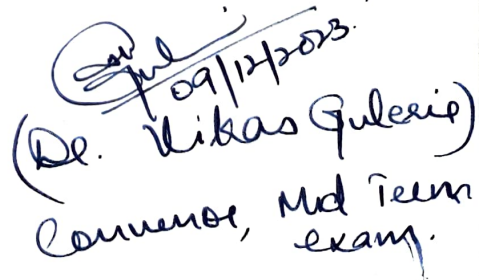 09/12/2023.
(Dr. Vikas Guleria)
Convenor, Mid Term
exam.